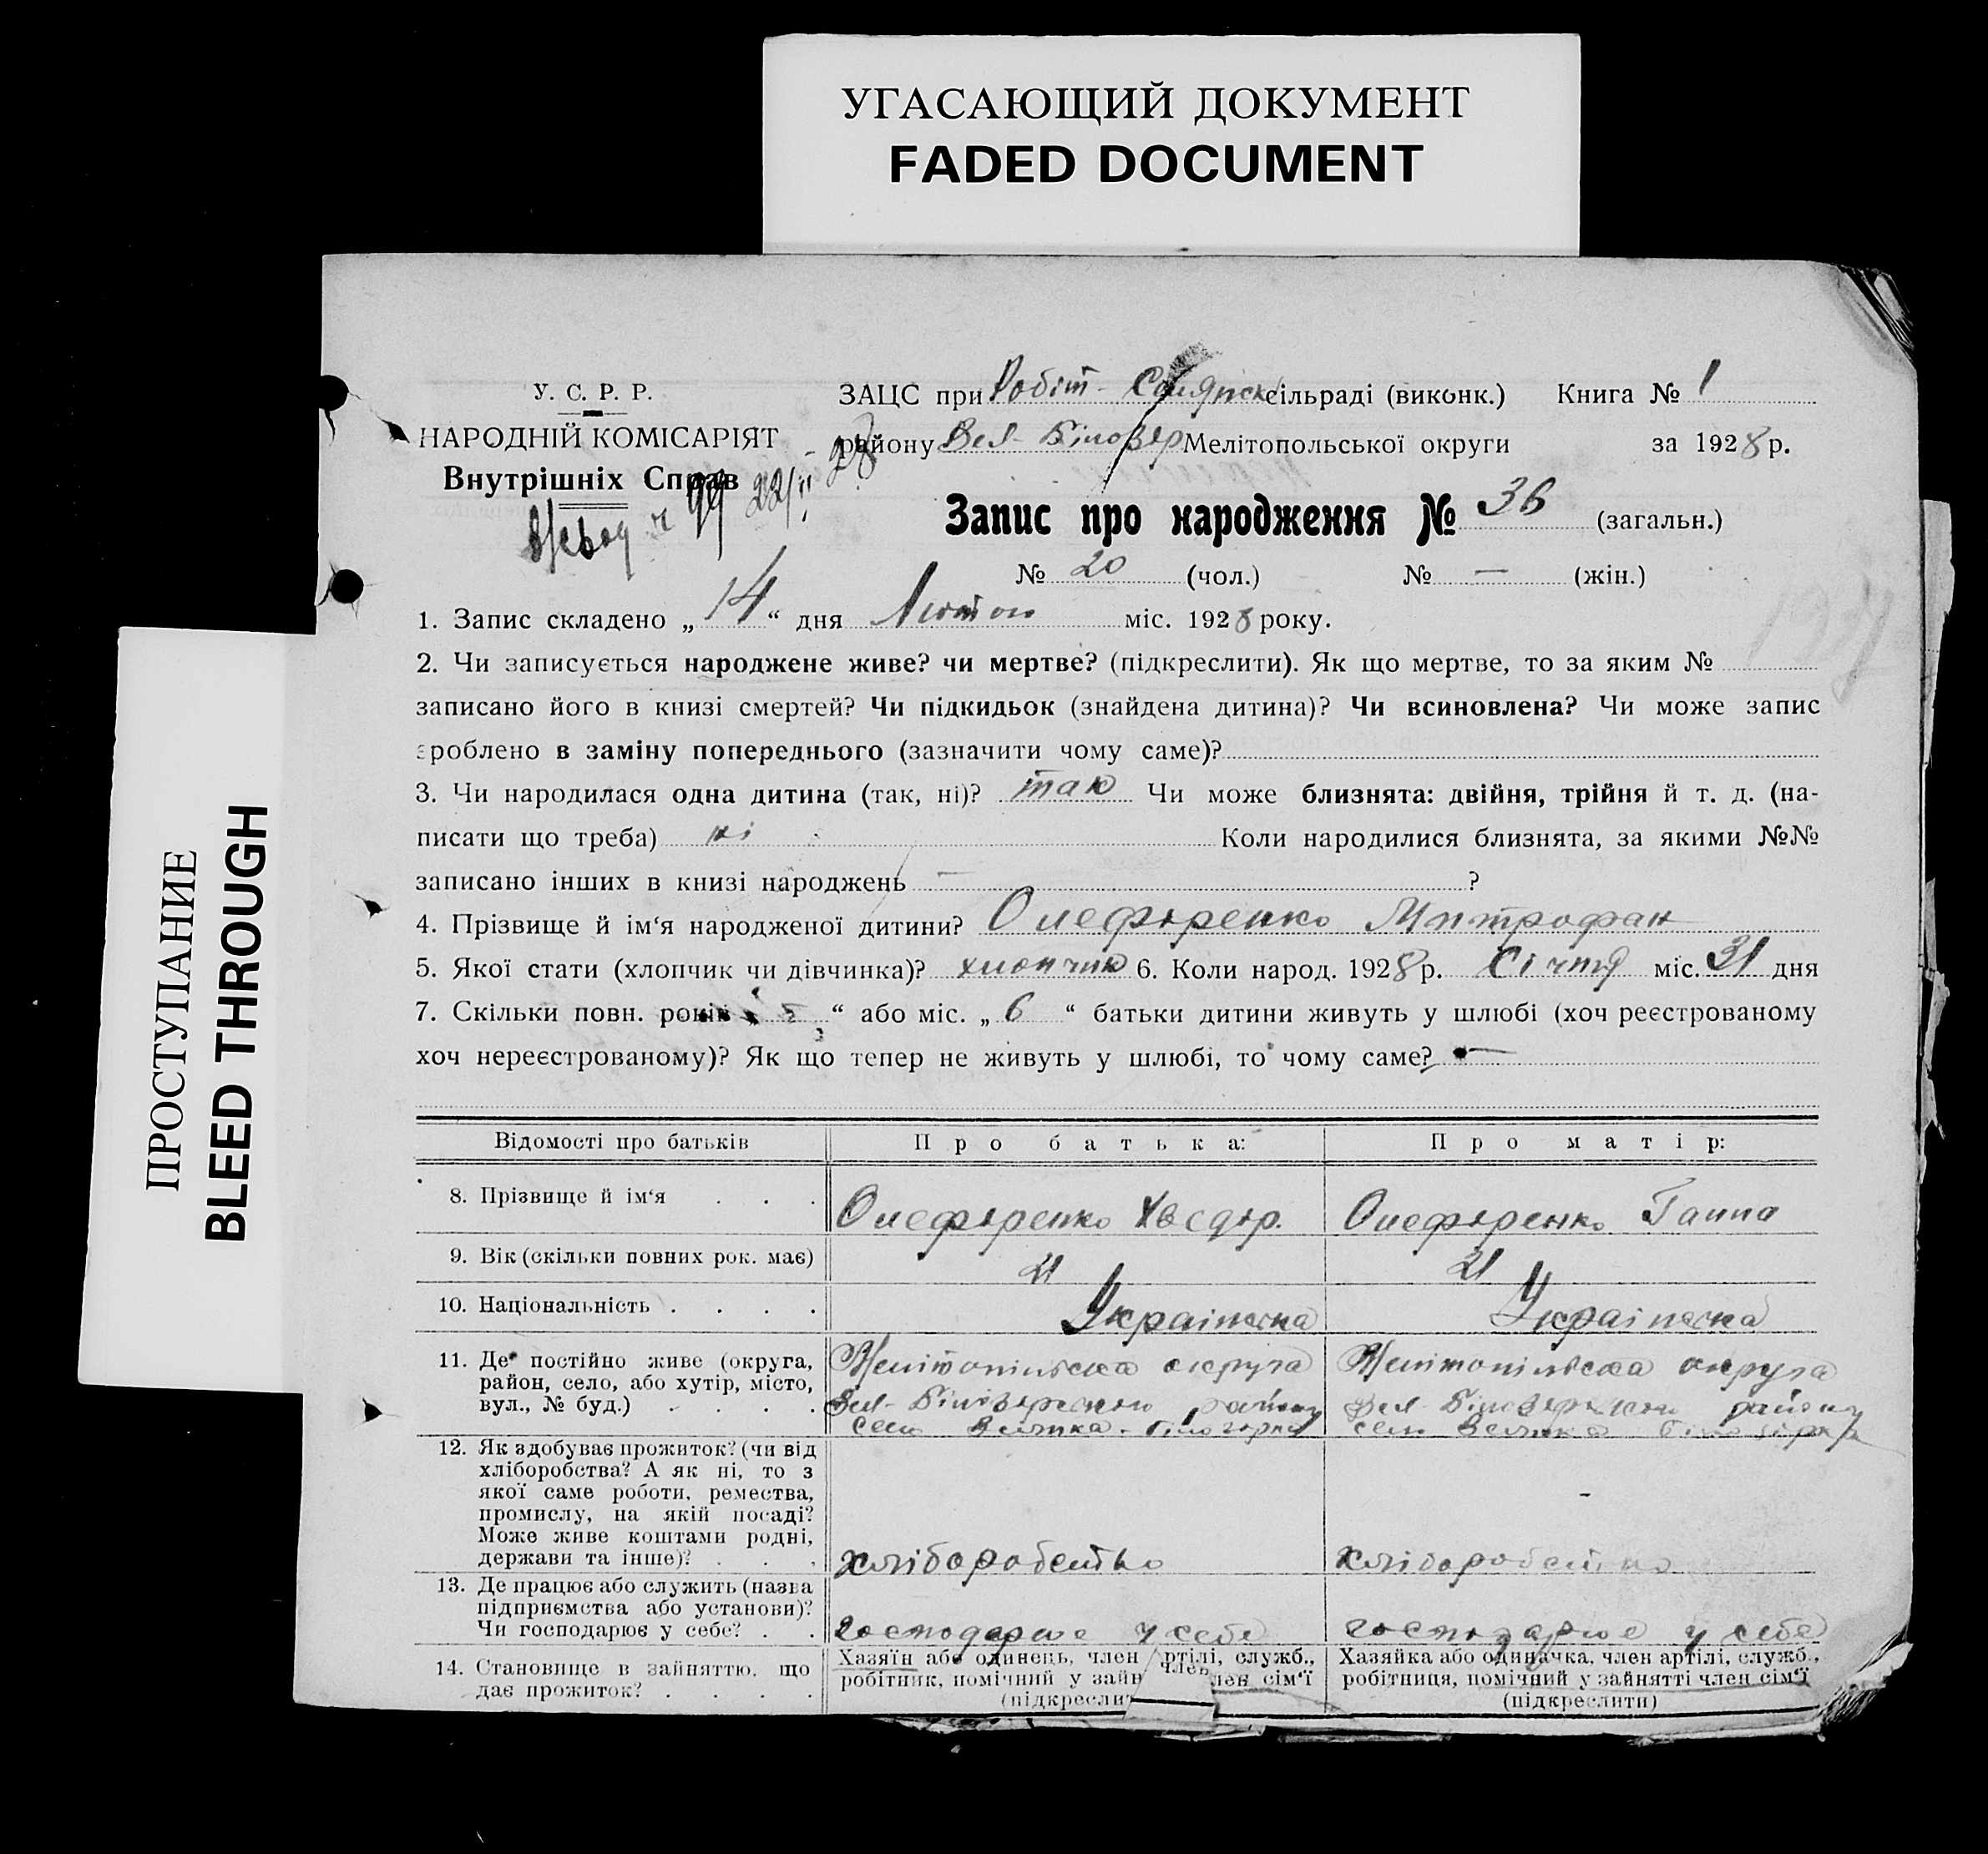 УГАСАЮЩИЙ ДОКУМЕНТ
FADED DOCUMENT
ПРОСТУПАНИЕ
BLEED THROUGH
У. С. Р. Р.
НАРОДНІЙ КОМІСАРІЯТ
Внутрішніх Справ
99 22/II 28
ЗАЦС при Робіт- сільраді (виконк.) Книга № 1
району Вел- Білозер Мелітопольської округи за 1928 р.
Запис про народження № 36 (загальн.)
№ 20 (чол.) № — (жін.)
1. Запис складено „14“ дня міс. 1928 року.
2. Чи записується народжене живе? чи мертве? (підкреслити). Як що мертве, то за яким №
записано його в книзі смертей? Чи підкидьок (знайдена дитина)? Чи всиновлена? Чи може запис
зроблено в заміну попереднього (зазначити чому саме)?
3. Чи народилася одна дитина (так, ні)? так Чи може близнята: двійня, трійня й т. д. (на-
писати що треба) ні Коли народилися близнята, за якими №№
записано інших в книзі народжень — ?
4. Прізвище й ім‘я народженої дитини? Олефіренко Митрофан
5. Якої стати (хлопчик чи дівчинка)? хлопчик 6. Коли народ. 1928 р. Січня міс. 31 дня
7. Скільки повн. років “ або міс. „6“ батьки дитини живуть у шлюбі (хоч реєстрованому
хоч нереєстрованому)? Як що тепер не живуть у шлюбі, то чому саме? —
Відомості про батьків Про батька: Про матір:
8. Прізвище й ім‘я . . . Олефіренко Хведор. Олефіренко Ганна
9. Вік (скільки повних рок. має) 21 21
10. Національність . . . . Украінська Украінська
11. Де постійно живе (округа, Мелітопільска округа Мелітопільска округа
район, село, або хутір, місто, Вел- Білозерского району Вел- Білозерского району
вул., № буд.) . . . . село Велика- Білозірка село Велика Білозірка
12. Як здобуває прожиток? (чи від
хліборобства? А як ні, то з
якої саме роботи, ремества,
промислу, на якій посаді?
Може живе коштами родні,
держави та інше)? . . . хліборобство хліборобство
13. Де працює або служить (назва
підприємства або установи)?
Чи господарює у себе? . . господарює у себе господарює у себе
14. Становище в зайняттю, що Хазяїн або одинець, член ртілі, служб., Хазяйка або одиначка, член артілі, служб.,
дає прожиток? . . . . робітник, помічний у зайн член лен сім‘ї робітниця, помічний у зайнятті член сім‘ї
(підкреслит (підкреслити)